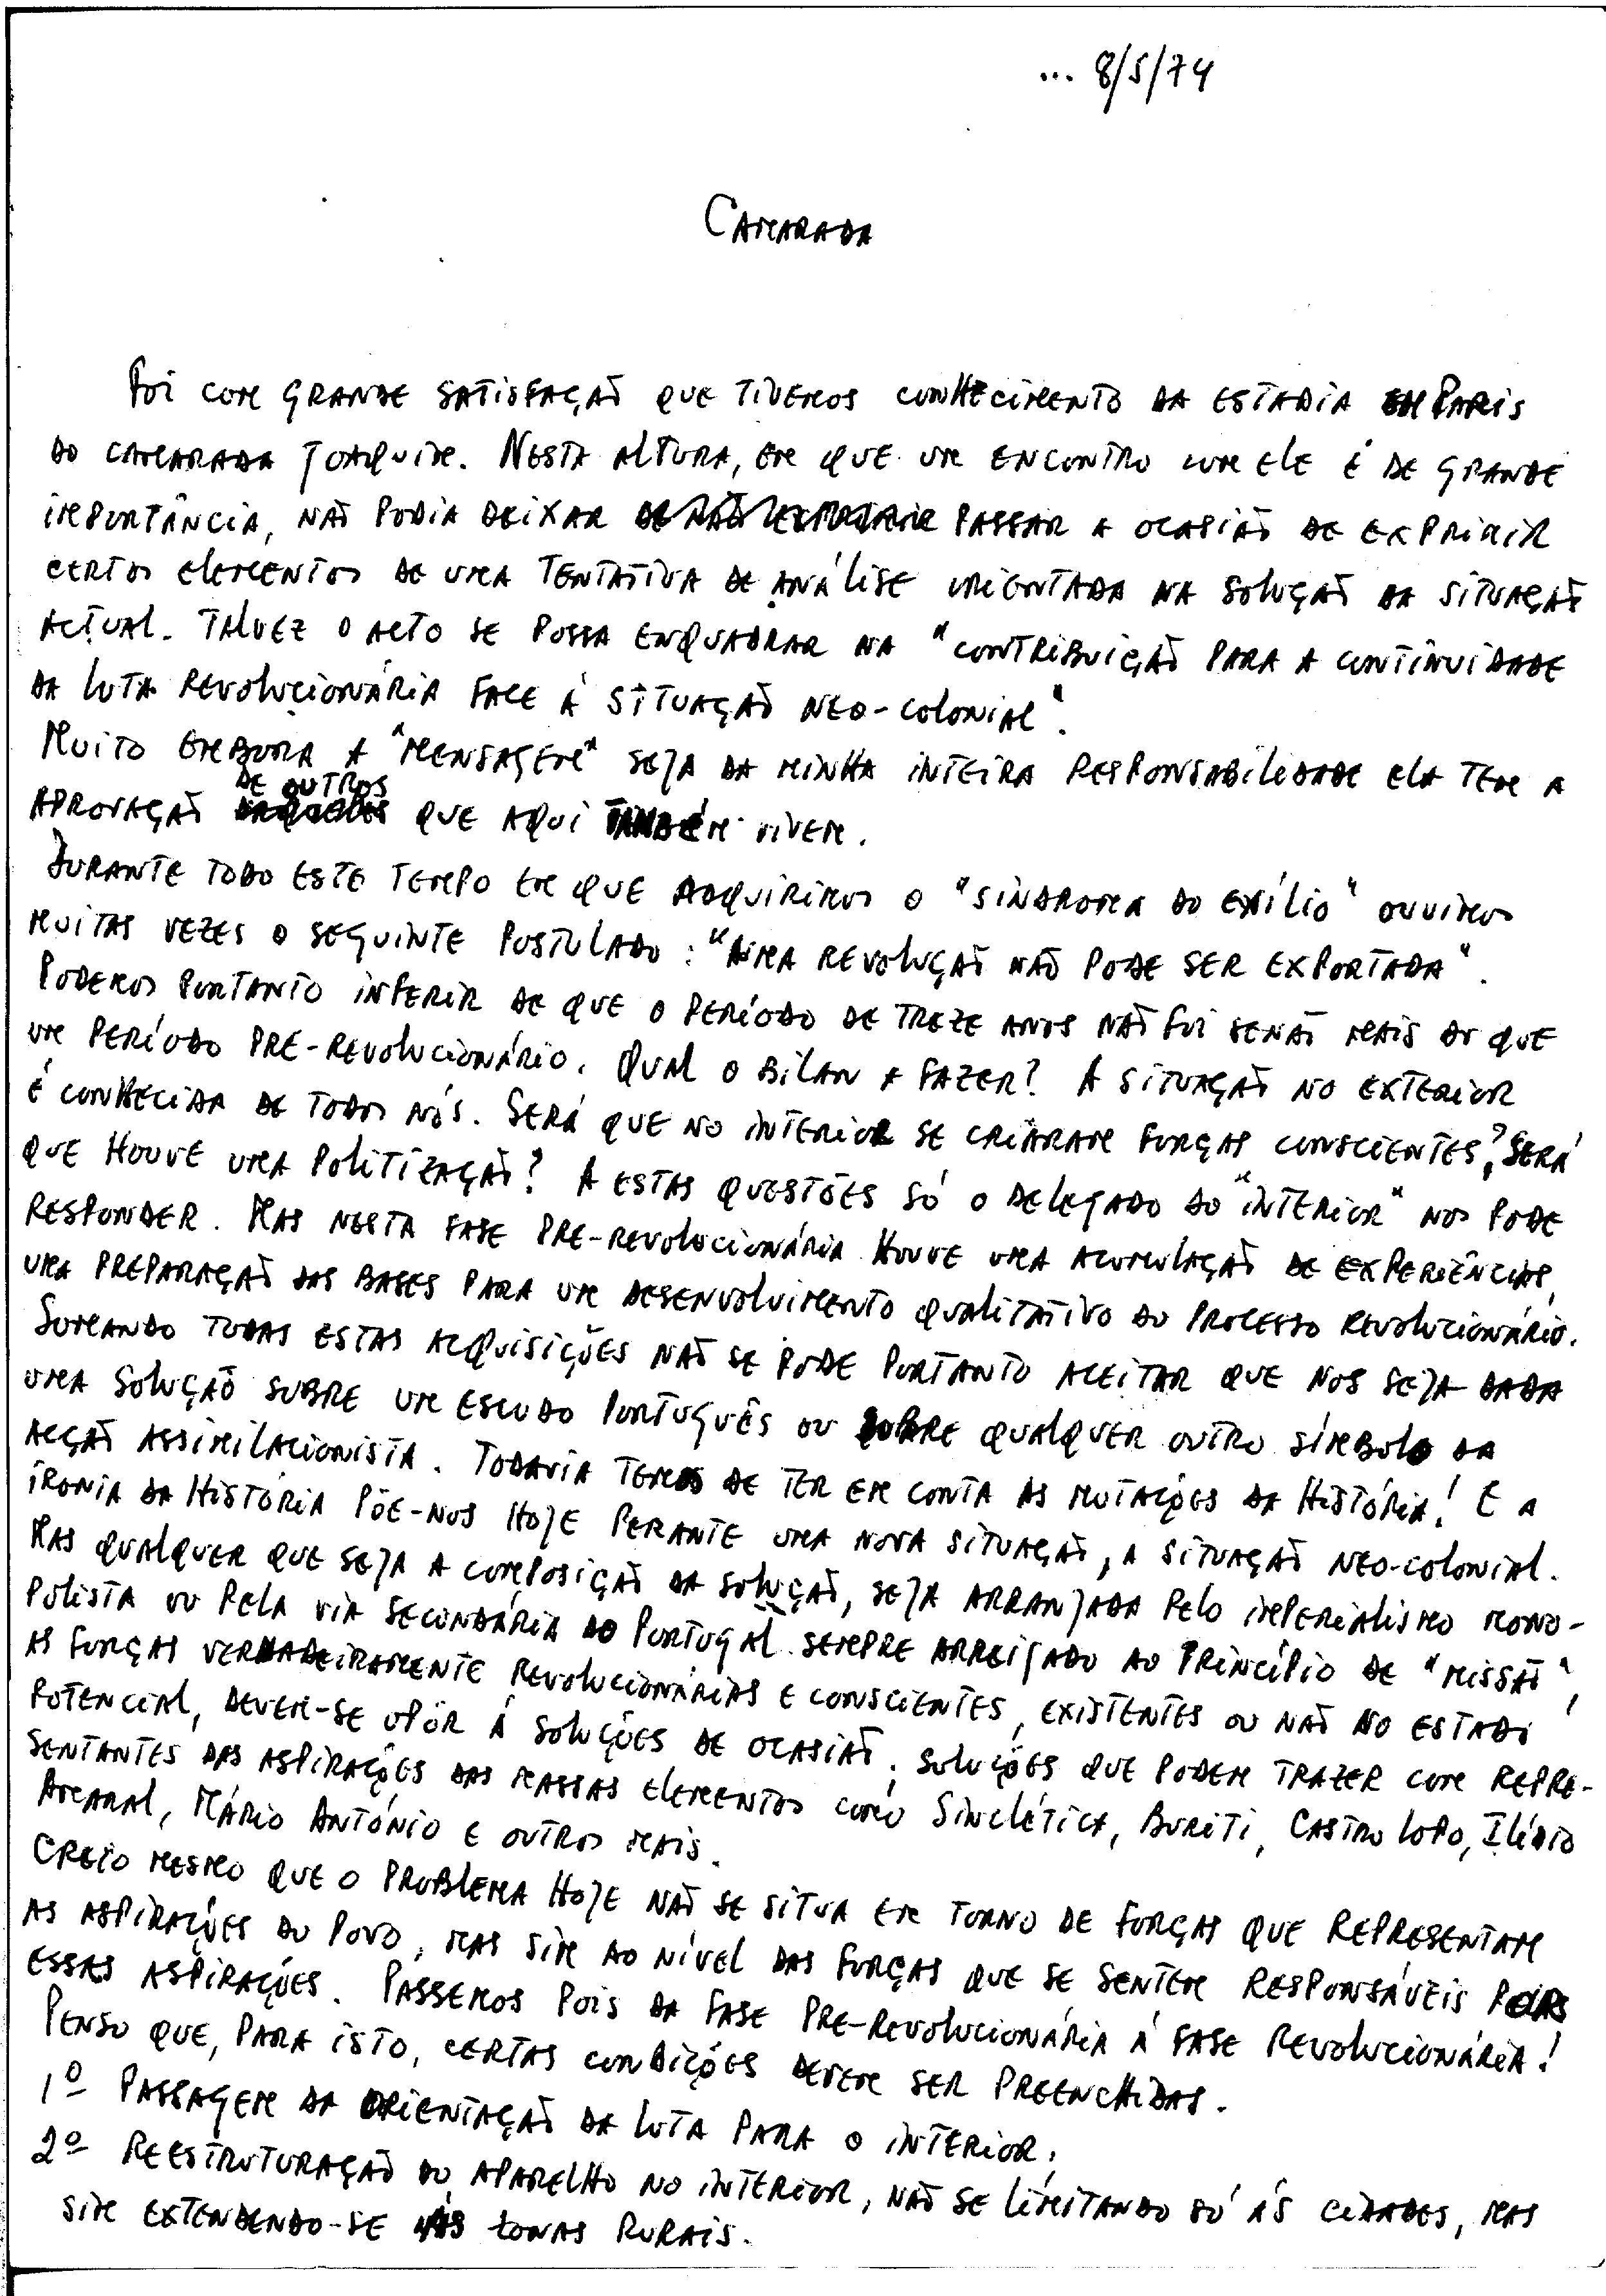 ... 8/5/74
Camarada
Foi com grande satisfação que tivemos conhecimento da estadia em Paris
do camarada Joaquim. Nesta altura, em que um encontro com ele é de grande
importância, não podia deixar passar a ocasião de exprimir
certos elementos de uma tentativa de análise orientada na solução da situação
actual. Talvez o acto se possa enquadrar na "contribuição para a continuidade
da luta revolucionária face á situação neo-colonial".
Muito embora a "mensagem" seja da minha inteira responsabilidade ela tem a
aprovação de outros que aqui também vivem.
Durante todo este tempo em que adquirimos o "sindroma do exílio" ouvimos
muitas vezes o seguinte postulado: "uma revolução não pode ser exportada".
Podemos portanto inferir de que o período de treze anos não foi senão mais do que
um período pré-revolucionário. Qual o bilan a fazer? A situação no exterior
é conhecida de todos nós. Será que no interior se criaram forças conscientes? Será
que houve uma politização? A estas questões só o delegado do "interior" nos pode
responder. Mas nesta fase pre-revolucionária houve uma acumulação de experiências,
uma preparação das bases para um desenvolvimento qualitativo do processo revolucionário.
Somando todas estas acquisições não se pode portanto aceitar que nos seja dada
uma solução sobre um escudo português ou sobre qualquer outro símbolo da
acção assimilacionista. Todavia temos de ter em conta as mutações da História! E a
ironia da História põe-nos hoje perante uma nova situação, a situação neo-colonial.
Mas qualquer que seja a composição da solução, seja arranjada pelo imperialismo mono-
polista ou pela via secundária do Portugal sempre arreigado ao princípio de "missão",
as forças verdadeiramente revolucionárias e conscientes, existentes ou não no estado
potencial, devem-se opôr á soluções de ocasião; soluções que podem trazer com repre-
sentantes das aspirações das massas elementos como Sinclética, Buriti, Castro Lopo, Ilídio
Amaral, Mário António e outros mais.
Creio mesmo que o problema hoje não se situa em torno de forças que representam
as aspirações do povo, mas sim ao nível das forças que se sentem responsáveis pelas
essas aspirações. Passemos pois da fase pre-revolucionária á fase revolucionária!
Penso que, para isto, certas condições devem ser preenchidas.
1º Passagem da orientação da luta para o interior.
2º Reestruturação do aparelho no interior, não se limitando só ás cidades, mas
sim extendendo-se ás zonas rurais.